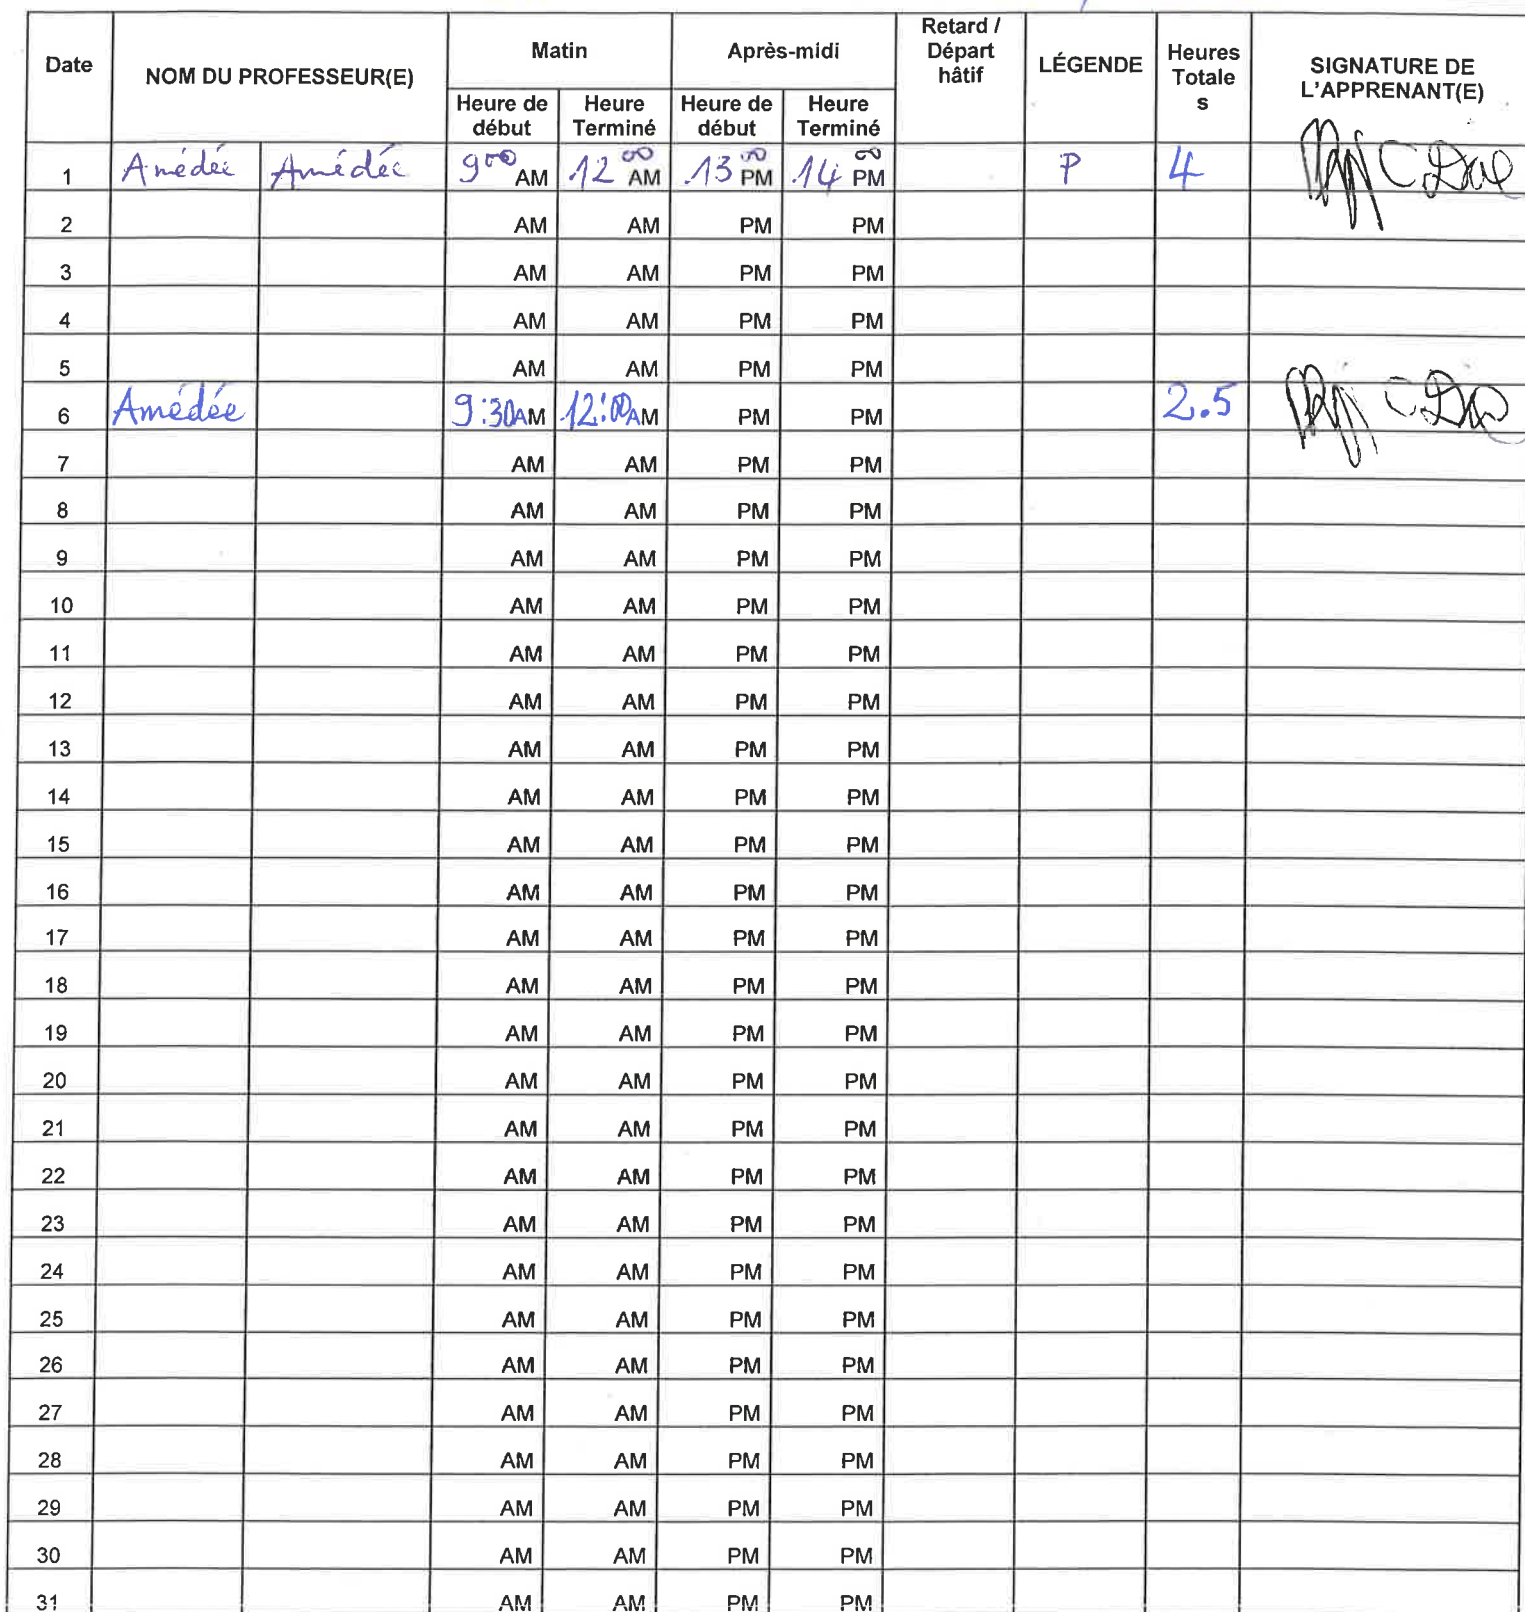 Date NOM DU PROFESSEUR(E) Matin Après-midi Retard / Départ hâtif LÉGENDE Heures Totale s SIGNATURE DE L'APPRENANT(E)
Heure de début Heure Terminé Heure de début Heure Terminé
1 Amédée Amédée 9 00 AM 12 00 AM 13 00 PM 14 00 PM P 4
2 AM AM PM PM
3 AM AM PM PM
4 AM AM PM PM
5 AM AM PM PM
6 Amédée 9:30 AM 12:00 AM PM PM 2.5
7 AM AM PM PM
8 AM AM PM PM
9 AM AM PM PM
10 AM AM PM PM
11 AM AM PM PM
12 AM AM PM PM
13 AM AM PM PM
14 AM AM PM PM
15 AM AM PM PM
16 AM AM PM PM
17 AM AM PM PM
18 AM AM PM PM
19 AM AM PM PM
20 AM AM PM PM
21 AM AM PM PM
22 AM AM PM PM
23 AM AM PM PM
24 AM AM PM PM
25 AM AM PM PM
26 AM AM PM PM
27 AM AM PM PM
28 AM AM PM PM
29 AM AM PM PM
30 AM AM PM PM
31 AM AM PM PM